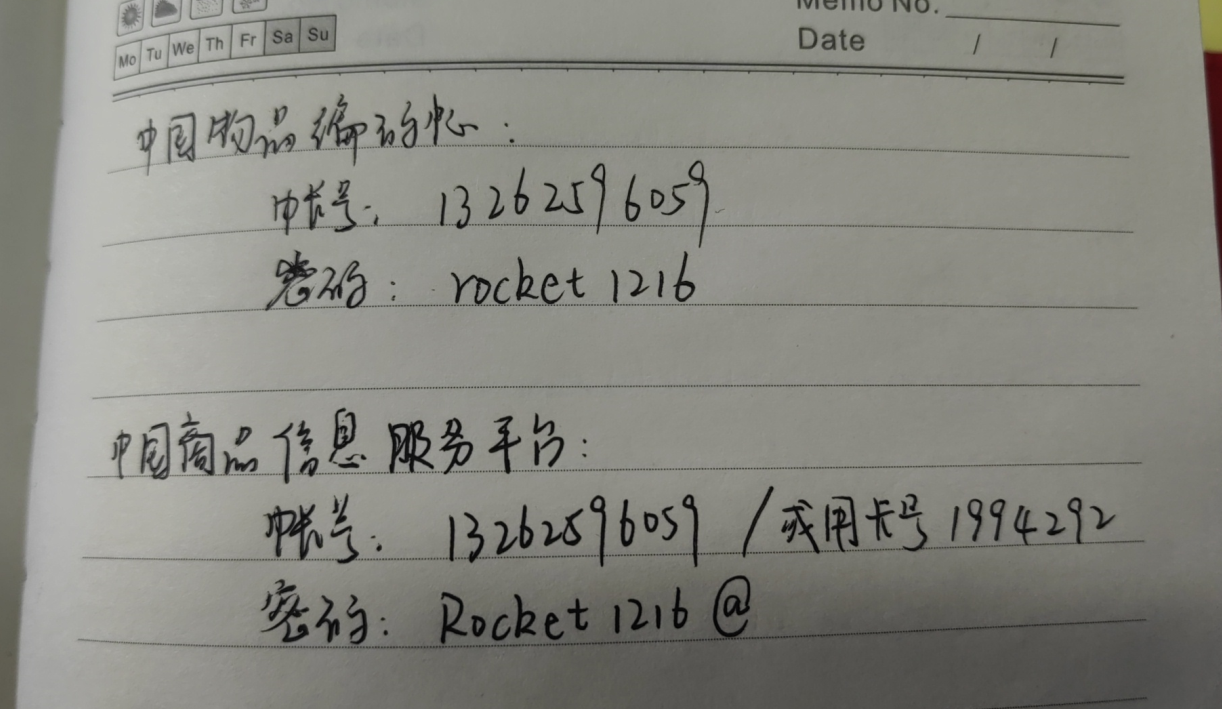 Memo No.
Mo Tu We Th Fr Sa Su
Date / /
中国物品编码中心：
帐号：13262596059
密码：rocket1216
中国商品信息服务平台：
帐号：13262596059 /或用卡号1994292
密码：Rocket1216@